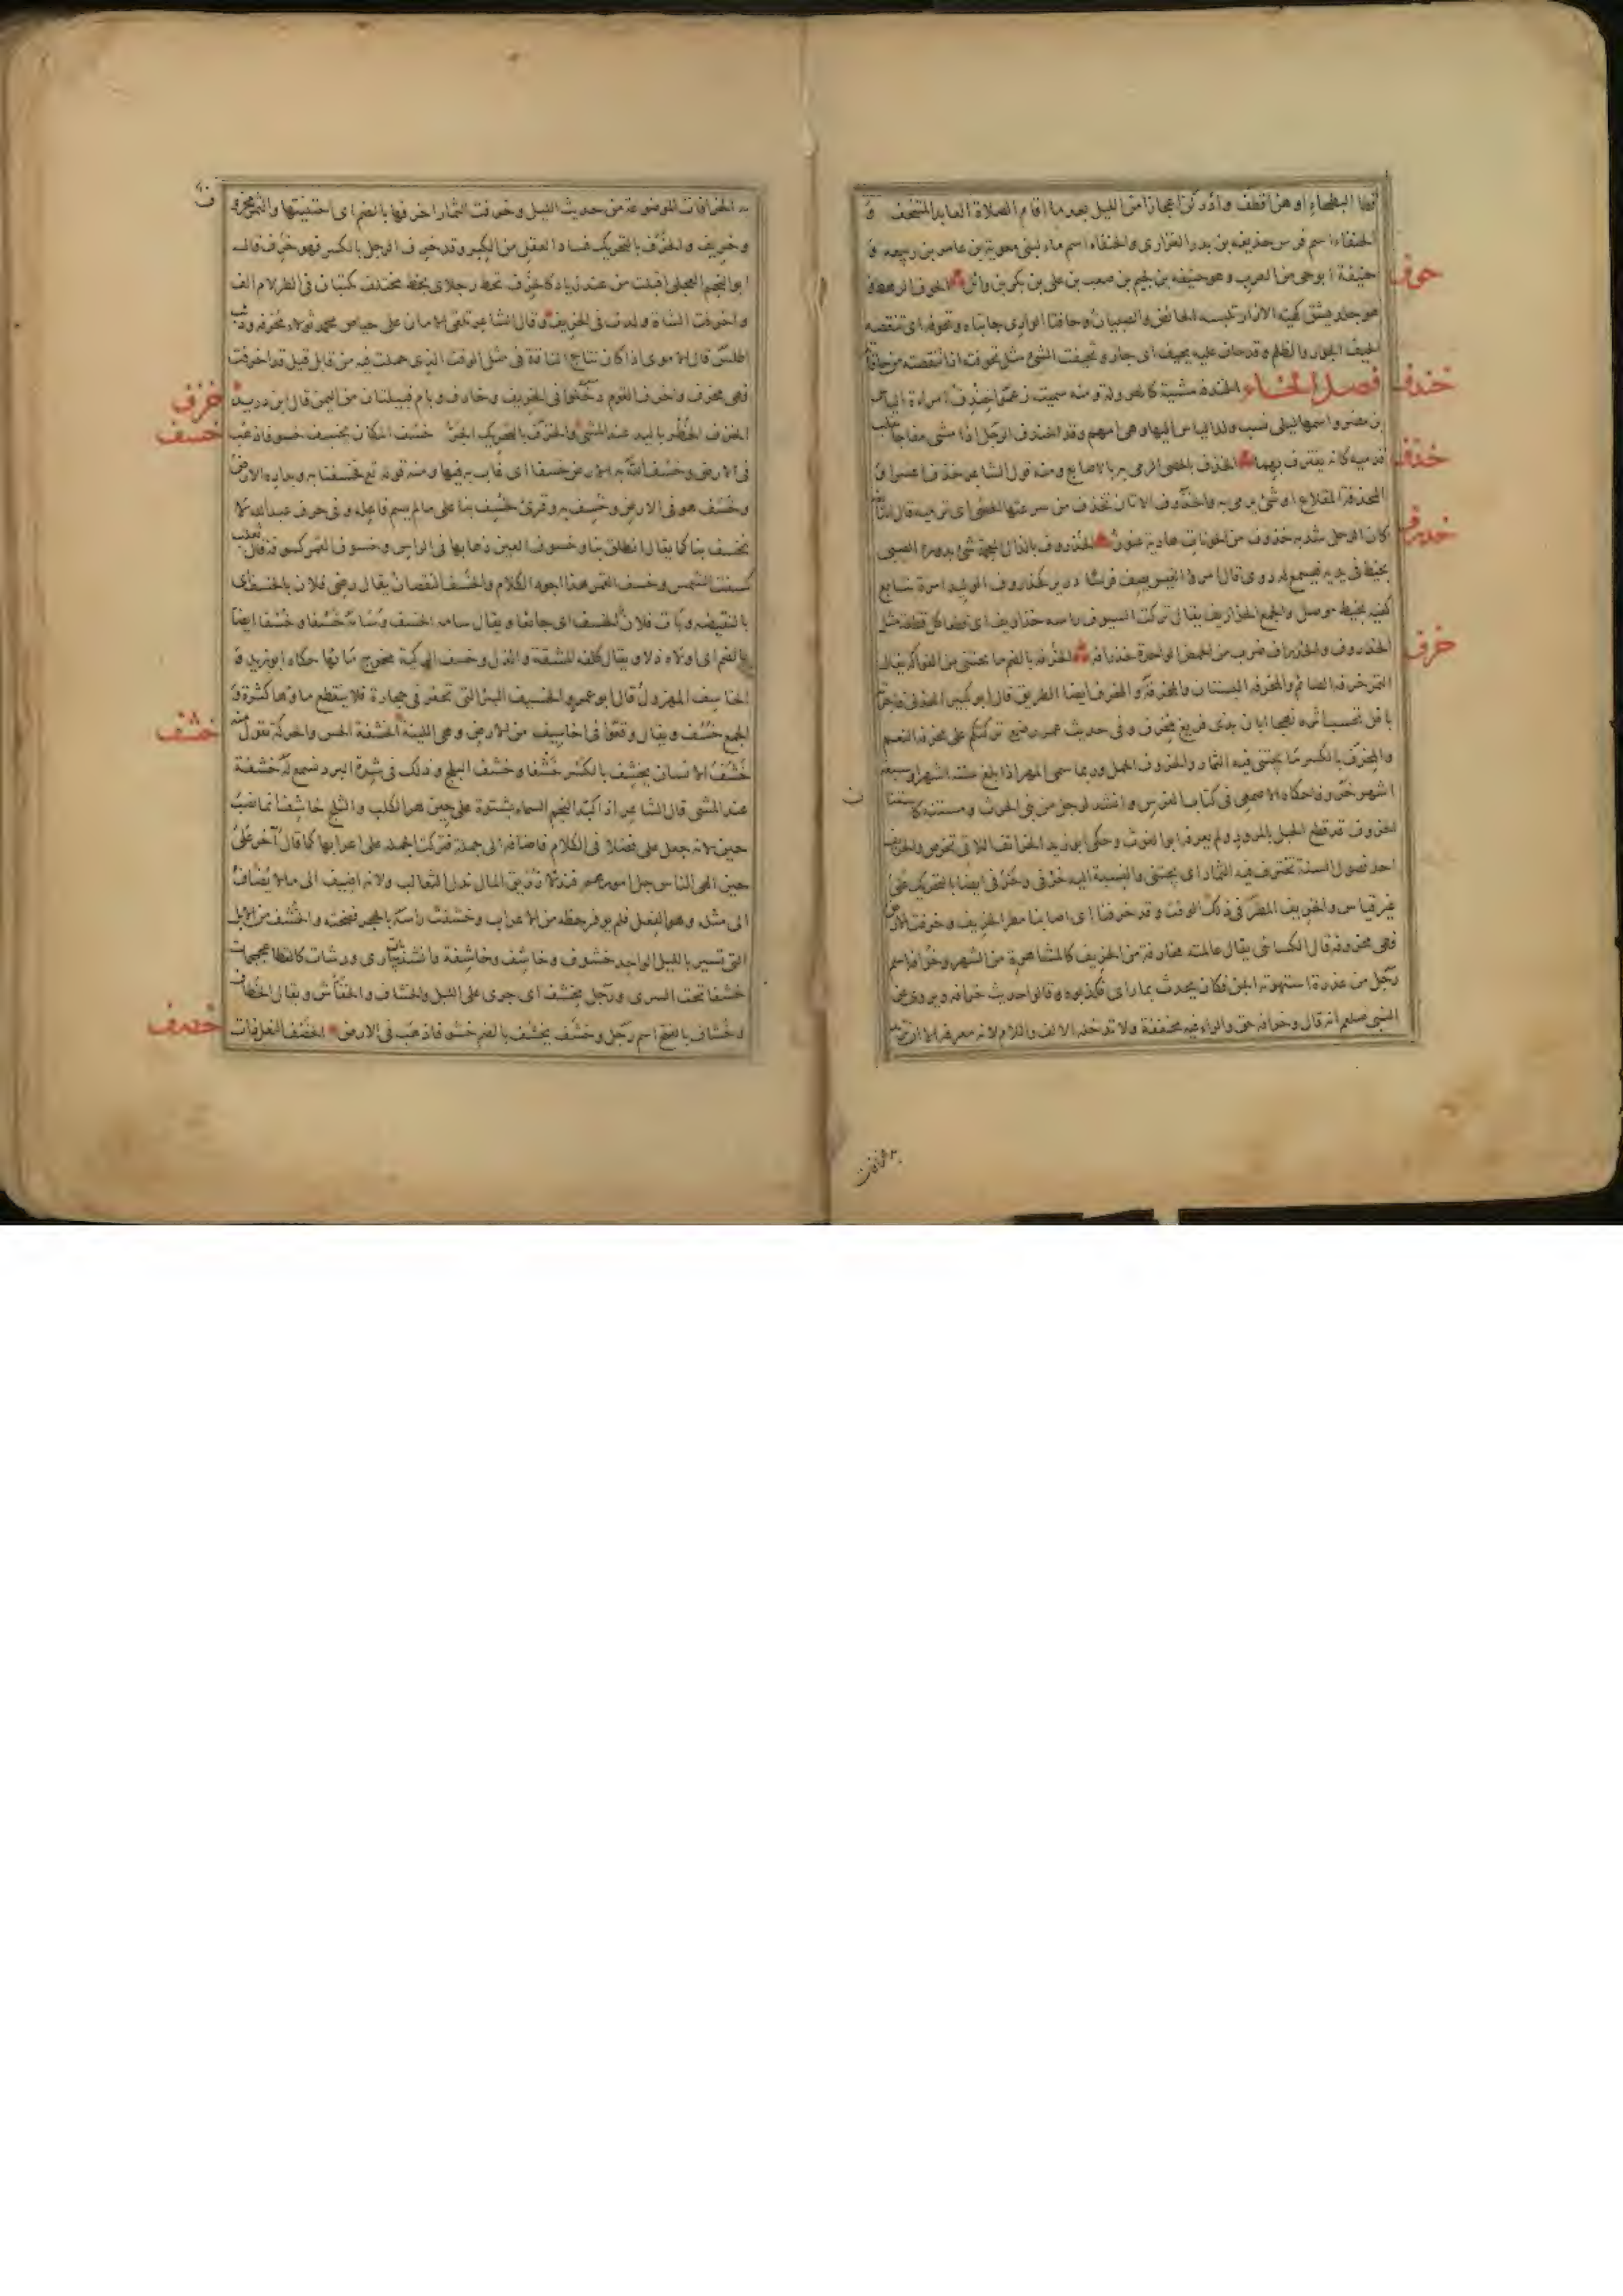 قطا البطحاء او هن اقطف وادركن اعجازا من الليل بعد ما اقام الصلاة العابد المتحنف و
الحنفاء اسم فرس حذيفة بن بدر الفزارى والحنفاء اسم ماء لبنى معوية بن عامر بن ربيعه و
حوف
حنيفة ابو حى من العرب وهو حنيفه بن لجيم بن صعب بن على بن بكر بن وائل الحوف الرهط و
هو جلد يشق كهيئة الازار تلبسه الحائض والصبيان وحافتا الوادى جانباه وتحوفه اى تنقصه
الحيف الجور والظلم وقد حاف عليه يحيف اى جار وتحيفت الشئ مثل تحوفت اذا تنقصته من حافاته
خندف
فصل الخاء الخندفة مشية كالهرولة ومنه سميت زعموا خندف امراة الياس
بن مضر واسمها ليلى نسب ولد الياس اليها وهى امهم وقد خندف الرجل اذا مشى مفاجا
خذف
قدميه كانه يغترف بهما الخذف بالحصى الرمى به بالاصابع ومنه قول الشاعر خذف اعسرا و
المخذفة المقلاع او شئ يرمى به والخذوف الاتان تخذف من سرعتها الحصى اى ترميه قال
خذرف
كان الرحل شد به خذوف من الجونات هادية عنون الخذروف بالذال المعجمة شئ يدوره الصبى
بخيط فى يديه فيسمع له دوى قال امرؤ القيس يصف فرسا درير كخذروف الوليد امره تتابع
كفيه بخيط موصل والجمع الخذاريف يقال تركت السيوف راسه خذاريف اى قطعا كل قطعة مثل
خرف
الخذروف والخذراف ضرب من الحمض الواحدة خذرافة الخرفة بالضم ما يجتنى من الفواكه يقال
التمر خرفة الصائم والمخرفة البستان والمخرفة والمخرف ايضا الطريق قال ابو كبير الهذلى فاجزته
بافل تحسب اثره نهجا ابان بذى فريغ مخرف وفى حديث عمر رضع تركتكم على مخرفة النعم
والمخرف بالكسر ما يجتنى فيه الثمار والخروف الحمل وربما سمى المهر اذا بلغ ستة اشهر او سبعة
اشهر خروفا حكاه الاصمعى فى كتاب الفرس وانشد لرجل من بنى الحرث ومستنة كاستنان
الخروف قد قطع الحبل بالمرود ولم يعرفه ابو الغوث وحكى ابو زيد
احد فصول السنة تخترف فيه الثمار اى يجتنى والنسبة اليه خرفى وخرفى ايضا بالتحريك على
غير قياس والخريف المطر فى ذلك الوقت وقد خرفنا اى اصابنا مطر الخريف وخرفت الارض
فهى مخروفة قال الكسائى يقال عاملته مخارفة من الخريف كالمشاهرة من الشهر وخرافة اسم
رجل من عذرة استهوته الجن فكان يحدث بما راى فكذبوه وقالوا حديث خرافة ويروى عن
النبى صلعم انه قال وخرافة حق والراء فيه مخففة ولا تدخله الالف واللام لانه معرفة الا ان تريد
به الخرافات
به الخرافات الموضوعة من حديث الليل وخرفت الثمار اخرفها بالضم اى اجتنيتها والثمر مخروف
وخريف والخرف بالتحريك فساد العقل من الكبر وقد خرف الرجل بالكسر فهو خرف قال
ابو النجم العجلى اقبلت من عند زياد كالخرف تخط رجلاى بخط مختلف تكتبان فى الطريق لام الف
واخرفت الشاة ولدت فى الخريف وقال الشاعر تلقى الامان على حياض محمد ثولاء مخرفة وذئب
اطلس قال الاموى اذا كان نتاج الناقة فى مثل الوقت الذى حملت فيه من قابل قيل قد اخرفت
خزف
فهى مخرف واخرف القوم دخلوا فى الخريف وخارف ويام قبيلتان من اليمن قال ابن دريد
خسف
الخزف الخطر باليد عند المشى والخزف بالتحريك الجر خسف المكان يخسف خسوفا ذهب
فى الارض وخسف الله به الارض خسفا اى غاب به فيها ومنه قوله تع فخسفنا به وبداره الارض
وخسف هو فى الارض وخسف به وقرئ لخسف بنا على ما لم يسم فاعله وفى حرف عبد الله لا
نخسف بنا كما يقال انطلق بنا وخسوف العين ذهابها فى الراس وخسوف القمر كسوفه قال ثعلب
كسفت الشمس وخسف القمر هذا اجود الكلام والخسف النقصان يقال رضى فلان بالخسف اى
بالنقيصة وبات فلان الخسف اى جائعا ويقال سامه الخسف وسامه خسفا وخسفا ايضا
بالضم اى اولاه ذلا ويقال كلفه المشقة والذل وخسف الركية مخرج مائها حكاه ابو زيد و
الخاسف المهزول قال ابو عمرو الخسيف البئر التى تحفر فى حجارة فلا ينقطع ماؤها كثرة و
خشف
الجمع خسف ويقال وقعوا فى اخاسيف من الارض وهى اللينة الخشفة الحس والحركة تقول منه
خشف الانسان يخشف بالكسر خشفا وخشف الثلج وذلك فى شدة البرد تسمع له خشفة
عند المشى قال الشاعر اذا كبد النجم السماء بشتوة على حين هر الكلب والثلج خاشف انما نصب
حين لانه جعل على فضلا فى الكلام فاضافه الى جملة فتركت الجملة على اعرابها كما قال آخر على
حين الهى الناس جل امورهم فندلا زريق المال ندل الثعالب ولانه اضيف الى ما لا يضاف
الى مثله وهو الفعل فلم يوفر حظه من الاعراب وخشفت راسه بالحجر فضخته والخشف من الابل
التى تسير بالليل الواحد خشوف وخاشف وخاشفة وانشد بات يبارى ورشات كالقطا عجمجمات
خشفا تحت السرى ورجل مخشف اى جرى على الليل والخشاف والخفاش ويقال الخطاف
خصف
وخشاف بالفتح اسم رجل وخشف يخشف بالضم خشوفا ذهب فى الارض الخصف النعل ذات